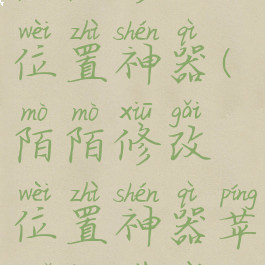 wèi zhì shén qì
位置神器(
mò mò xiū gǎi
陌陌修改
wèi zhì shén qì píng
位置神器苹